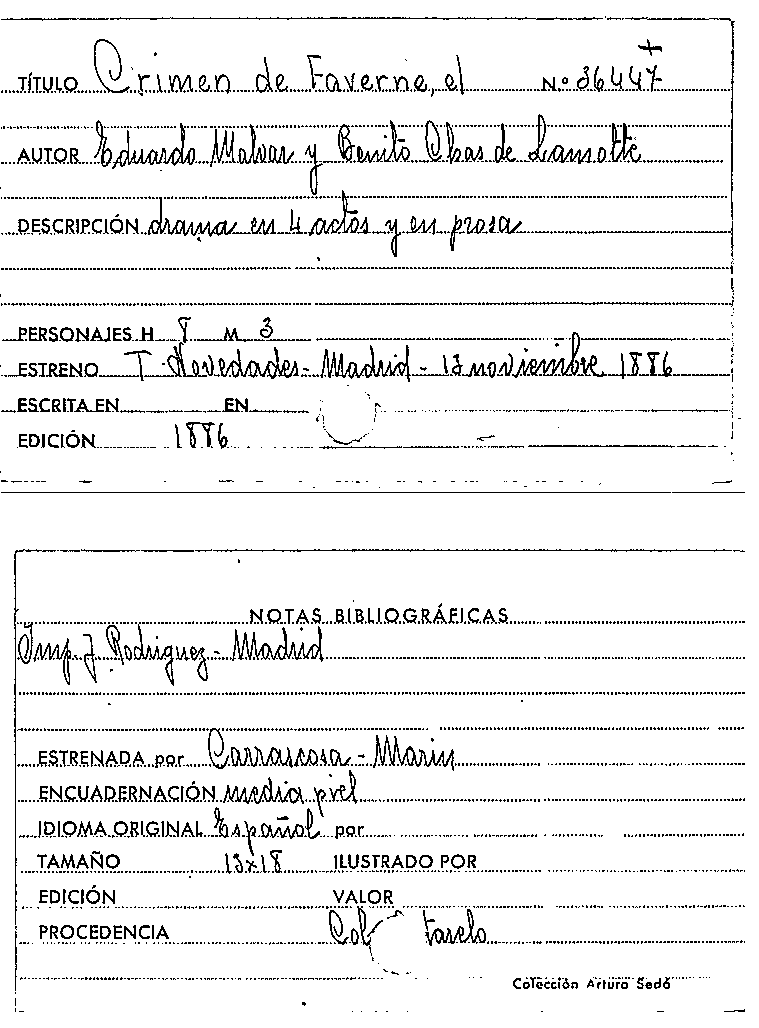 TÍTULO Crimen de Faverne, el N.º 36447
AUTOR Eduardo Malvar y Benito Chas de Lamotte
DESCRIPCIÓN drama en 4 actos y en prosa
PERSONAJES H 8 M 3
ESTRENO T. Novedades - Madrid - 13 noviembre 1886
ESCRITA EN EN
EDICIÓN 1886
NOTAS BIBLIOGRÁFICAS
Imp. J. Rodriguez - Madrid
ESTRENADA por Carrascosa - Marin
ENCUADERNACIÓN media piel
IDIOMA ORIGINAL Español por
TAMAÑO 13x18 ILUSTRADO POR
EDICIÓN VALOR
PROCEDENCIA Col
Colección Arturo Sedó